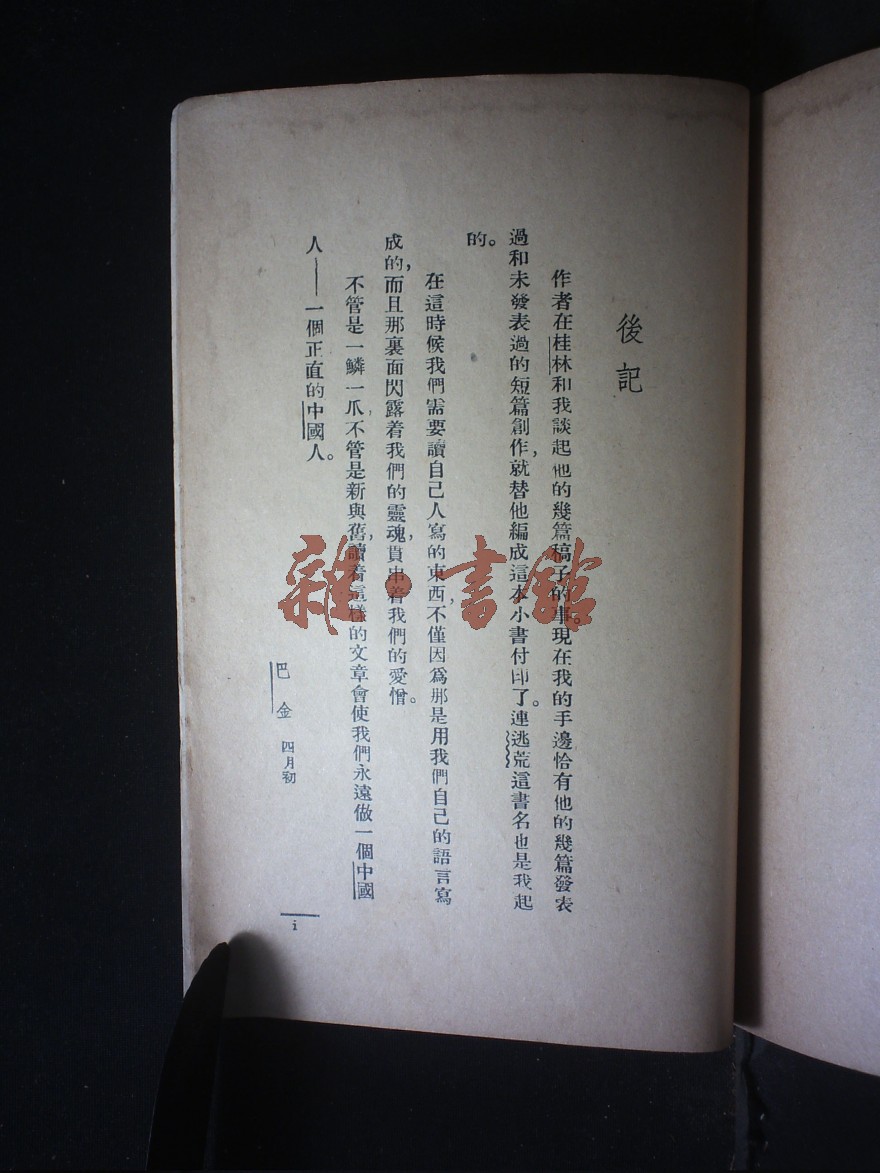 後記
作者在桂林和我談起他的幾篇稿子的事。現在我的手邊恰有他的幾篇發表
過和未發表過的短篇創作，就替他編成這本小書付印了。連逃荒這書名也是我起
的。
在這時候我們需要讀自己人寫的東西，不僅因爲那是用我們自己的語言寫
成的，而且那裏面閃露着我們的靈魂，貫串着我們的愛憎。
不管是一鱗一爪，不管是新與舊，讀着這樣的文章會使我們永遠做一個中國
人——一個正直的中國人。
巴金 四月初
i
雜·書館